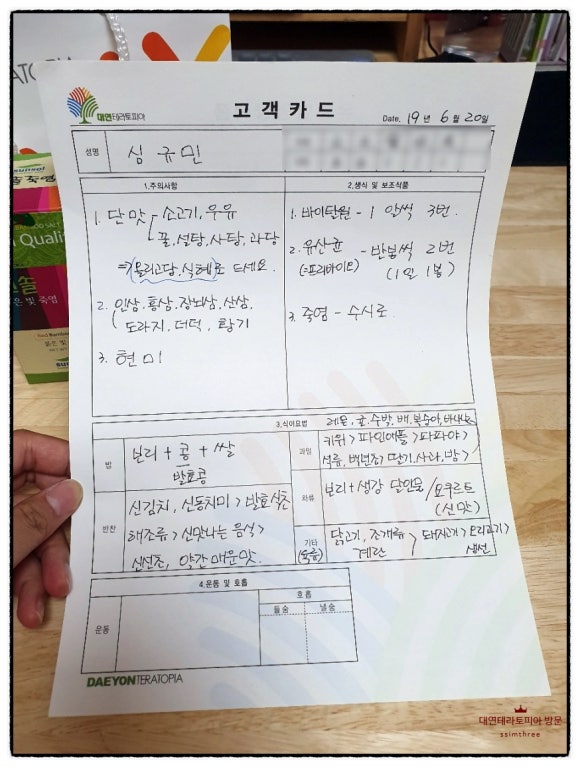 대연테라토피아
고객카드
Date. 19년 6월 20일
성명
심규민
1.주의사항
1. 단맛 소고기, 우유
꿀, 설탕, 사탕, 과당
⇒ (올리고당, 식혜)로 드세요.
2. 인삼, 홍삼, 장뇌삼, 산삼,
도라지, 더덕, 황기
3. 현미
2.생식 및 보조식품
1. 바이탄원 - 1알씩 3번.
2. 유산균 - 반봉씩 2번
(=프리바이오) (1일 1봉)
3. 죽염 - 수시로
3.식이요법
밥
보리 + 콩 + 쌀
발효콩
반찬
신김치, 신동치미 > 발효식초
해조류 > 신맛나는 음식 >
신선초, 약간 매운맛.
과일
레몬, 귤, 수박, 배, 복숭아, 바나나
키위 > 파인애플 > 파파야 >
석류, 딸기, 사과, 밤 >
차류
보리 + 생강 달인물 / 요구르트
(신맛)
기타
(육류)
닭고기, 조개류 > 돼지고기 > 오리고기 >
계란 생선
4.운동 및 호흡
운동
호흡
들숨
날숨
DAEYONTERATOPIA
sunsol
죽염
Quality
대연테라토피아 방문
ssimthree